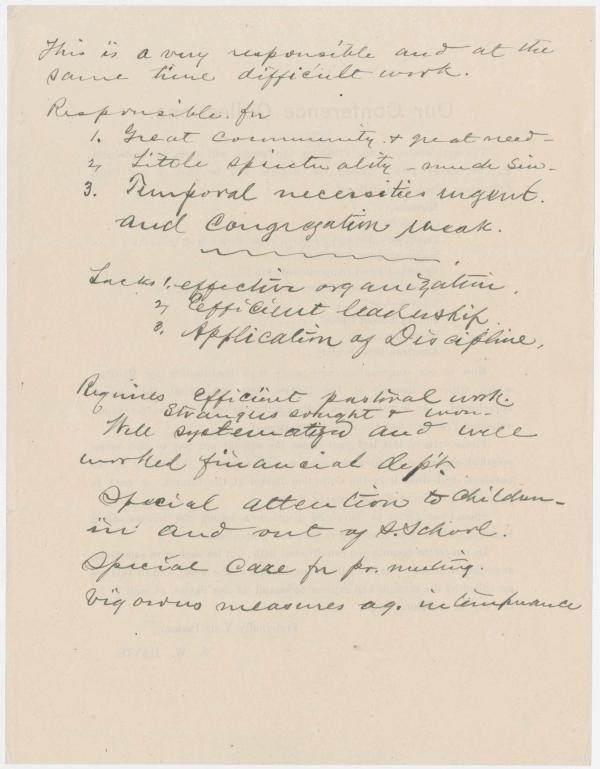 This is a very responsible and at the
same time difficult work.
Responsible for
1. Great community & great need -
2, Little spirituality - much sin -
3. Temporal necessities urgent.
and congregation weak.
Lacks 1. effective organization.
2, Efficient leadership
3. Application of Discipline.
Requires efficient pastoral work.
Strangers sought & won -
Well systematized and well
worked financial dep't.
Special attention to children -
in and out of S. School.
Special care for pr. meeting.
Vigorous measures ag. intemperance
Our Conference
Fraternally Your Pastor,